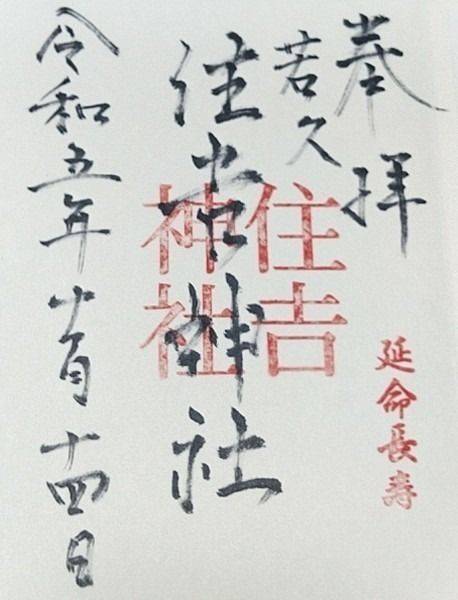 奉拝
若久
住吉神社
住吉
神社
延命長寿
令和五年十月十四日